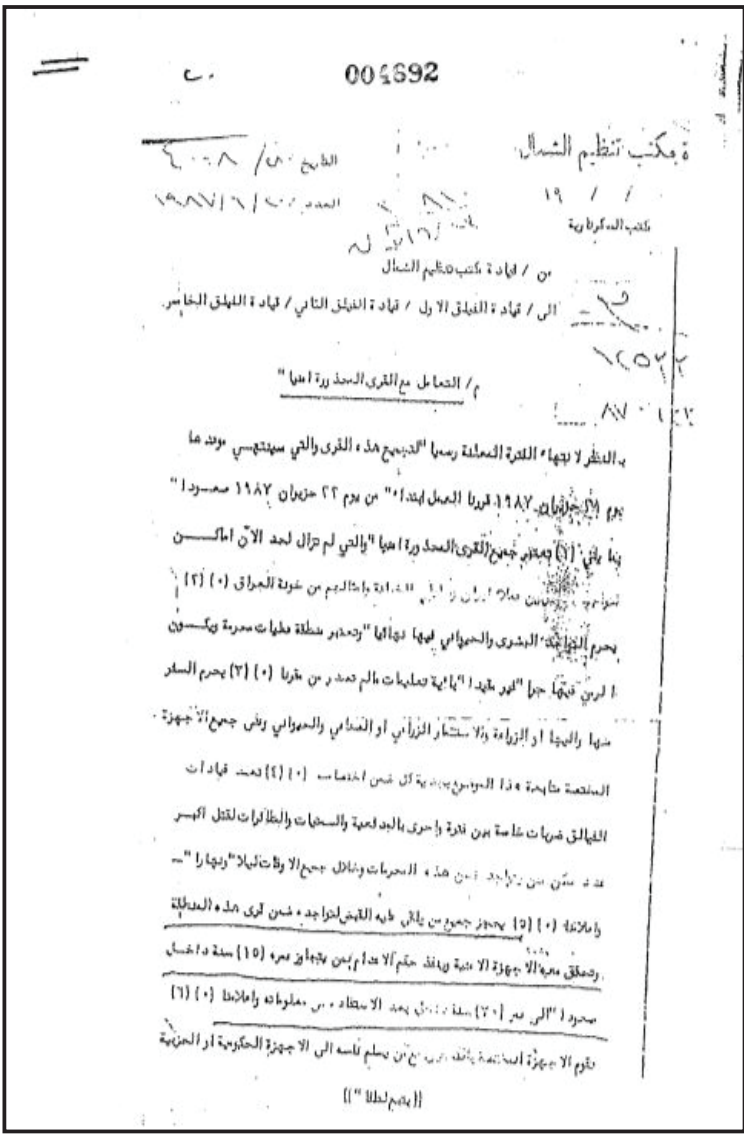 004692
مكتب تنظيم الشمال
التاريخ
١٩ / /
العدد
١٩٨٧/٦/٢٠
مكتب السكرتارية
من / قيادة مكتب تنظيم الشمال
الى / قيادة الفيلق الاول / قيادة الفيلق الثاني / قيادة الفيلق الخامس
م/ التعامل مع القرى المحذورة امنيا"
بالنظر لانتهاء الفترة المعلنة رسميا" لتجميع هذه القرى والتي سينتهي موعدها
يوم حزيران ١٩٨٧ قررنا العمل ابتداء" من يوم ٢٢ حزيران ١٩٨٧ صعودا"
بما يأتي (١) تعتبر جميع القرى المحذورة امنيا" والتي لم تزال لحد الآن اماكن
ايران وامثالهم من خونة العراق (٠) (٢)
يحرم التواجد البشري والحيواني فيها نهائيا" وتعتبر منطقة عمليات محرمة ويكون
الرمي فيها حرا" غير مقيدا" باية تعليمات مالم تصدر من مقرنا (٠) (٣) يحرم السفر
منها واليها او الزراعة والاستثمار الزراعي او الصناعي والحيواني وعلى جميع الاجهزة
المختصة متابعة هذا الموضوع بجدية كل ضمن اختصاصه (٠) (٤) تعد قيادات
الفيالق ضربات خاصة بين فترة واخرى بالمدفعية والسمتيات والطائرات لقتل اكبر
عدد ممكن ممن يتواجد ضمن هذه المحرمات وخلال جميع الاوقات ليلا" ونهارا"
واعلامنا (٠) (٥) يحجز جميع من يلقى عليه القبض لتواجده ضمن قرى هذه المنطقة
وتحقق معه الاجهزة الامنية وينفذ حكم الاعدام بمن يتجاوز عمره (١٥) سنة داخل
صعودا" الى عمر (٧٠) سنة بعد الاستفادة من معلوماته واعلامنا (٠) (٦)
تقوم الاجهزة المختصة مع من يسلم نفسه الى الاجهزة الحكومية او الحزبية
((يتبع لطفا"))